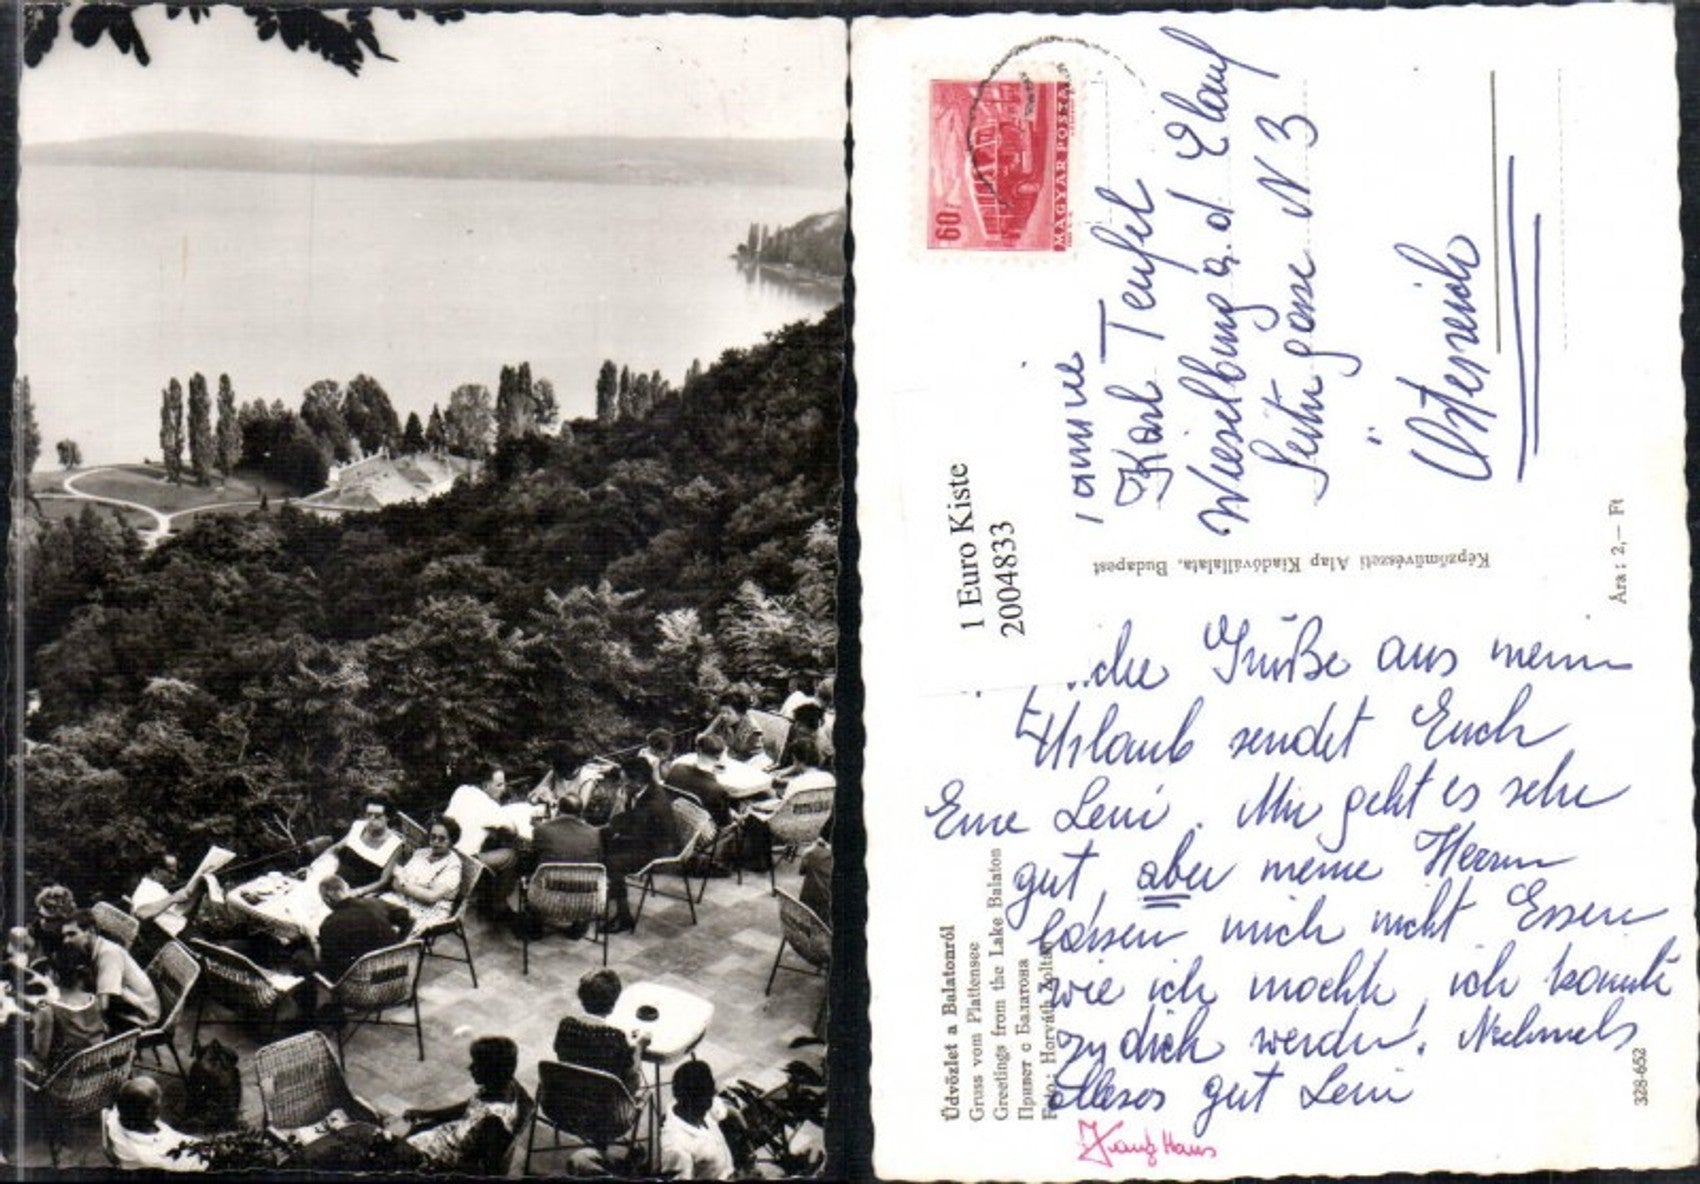 60f
MAGYAR POSTA
Karl Teufel
Wieselburg a. d Elauf
gasse N 3
Österreich
1 Euro Kiste
2004833
Képzőművészeti Alap Kiadóvállalata, Budapest
Ára: 2,— Ft
Grüße aus mein
Urlaub sendet Euch
Eure Leni. Mir geht es sehr
gut, aber meine Herrn
lassen mich nicht Essen
wie ich möchte, ich könnte
zu dick werden!
Alles gut Leni
Hans
Üdvözlet a Balatonról
Gruss vom Plattensee
Greetings from the Lake Balaton
Привет с Балатона
Foto: Horváth Zoltán
328-652